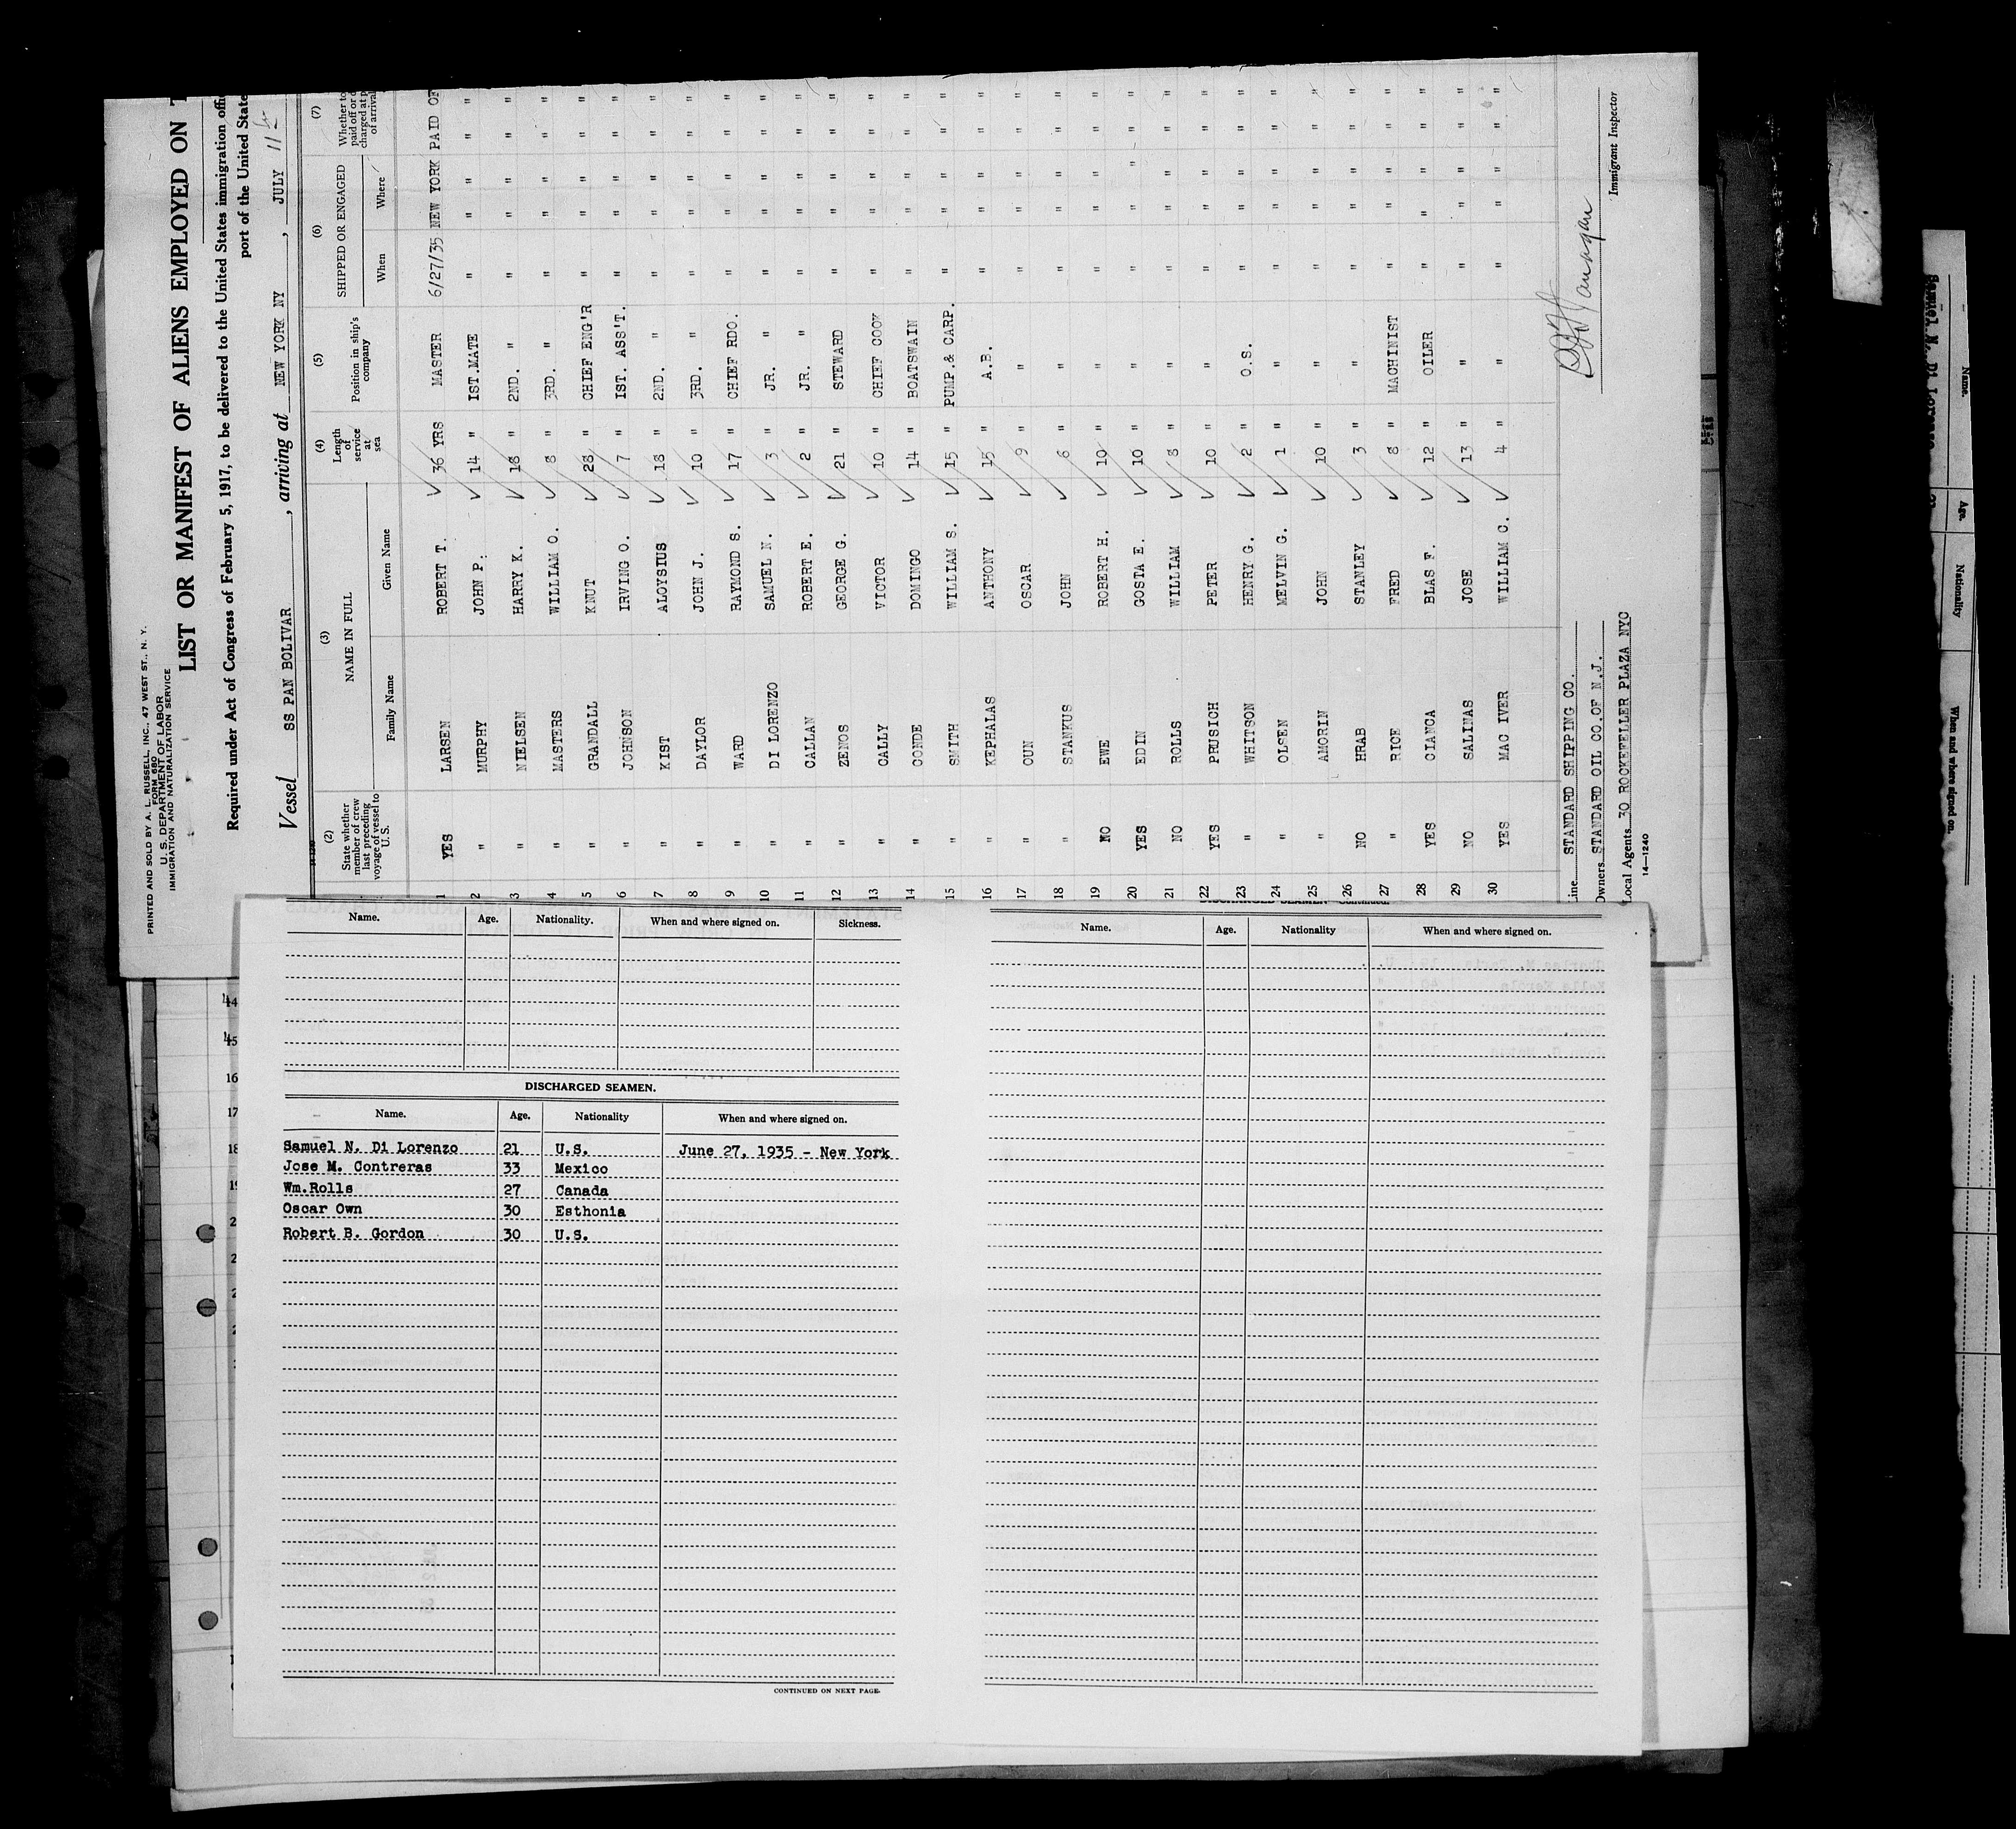 PRINTED AND SOLD BY A. L. RUSSELL, INC., 47 WEST ST., N. Y.
FORM 680
U. S. DEPARTMENT OF LABOR
IMMIGRATION AND NATURALIZATION SERVICE
LIST OR MANIFEST OF ALIENS EMPLOYED ON
Required under Act of Congress of February 5, 1917, to be delivered to the United States immigration
port of the United State
Vessel SS PAN BOLIVAR, arriving at NEW YORK NY, JULY 11
(2) (3) (4) (5) (6) (7)
State whether member of crew last preceding voyage of vessel to U. S. NAME IN FULL Length of service at sea Position in ship's company SHIPPED OR ENGAGED Whether to paid off or charged at of arrival
Family Name Given Name When Where
1 YES LARSEN ROBERT T. 36 YRS MASTER 6/27/35 NEW YORK PAID OF
2 " MURPHY JOHN P. 14 " IST.MATE " " " " "
3 " NIELSEN HARRY K. 18 " 2ND. " " " " " "
4 " MASTERS WILLIAM O. 8 " 3RD. " " " " " "
5 " GRANDALL KNUT 28 " CHIEF ENG'R " " " " "
6 " JOHNSON IRVING O. 7 " IST. ASS'T. " " " " "
7 " KIST ALOYSIUS 18 " 2ND. " " " " " "
8 " DAYLOR JOHN J. 10 " 3RD. " " " " " "
9 " WARD RAYMOND S. 17 " CHIEF RDO. " " " " "
10 " DI LORENZO SAMUEL N. 3 " JR. " " " " " "
11 " CALLAN ROBERT E. 2 " JR. " " " " " "
12 " ZENOS GEORGE G. 21 " STEWARD " " " " "
13 " CALLY VICTOR 10 " CHIEF COOK " " " " "
14 " CONDE DOMINGO 14 " BOATSWAIN " " " " "
15 " SMITH WILLIAM S. 15 " PUMP.& CARP. " " " " "
16 " KEPHALAS ANTHONY 15 " A.B. " " " " "
17 " OUN OSCAR 9 " " " " " " "
18 " STANKUS JOHN 6 " " " " " " "
19 NO EWE ROBERT H. 10 " " " " " " "
20 YES EDIN GOSTA E. 10 " " " " " " "
21 NO ROLLS WILLIAM 8 " " " " " " "
22 YES PRUSICH PETER 10 " " " " " " "
23 " WHITSON HENRY G. 2 " O.S. " " " " "
24 " OLSEN MELVIN G. 1 " " " " " " "
25 " AMORIN JOHN 10 " " " " " " "
26 NO HRAB STANLEY 3 " " " " " " "
27 " RICE FRED 8 " MACHINIST " " " " "
28 YES CIANCA BLAS F. 12 " OILER " " " " "
29 NO SALINAS JOSE 13 " " " " " " "
30 YES MAC IVER WILLIAM C. 4 " " " " " " "
ine STANDARD SHIPPING CO.
Owners STANDARD OIL CO.OF N.J.
Local Agents 30 ROCKEFELLER PLAZA NYC
Immigrant Inspector
14—1240
Name. Age. Nationality. When and where signed on. Sickness.
DISCHARGED SEAMEN.
Name. Age. Nationality When and where signed on.
Samuel N. Di Lorenzo 21 U.S. June 27, 1935 - New York
Jose M. Contreras 33 Mexico
Wm.Rolls 27 Canada
Oscar Own 30 Esthonia
Robert B. Gordon 30 U.S.
CONTINUED ON NEXT PAGE.
DISCHARGED SEAMEN—Continued.
Name. Age. Nationality When and where signed on.
14
15
16
17
18
Name. Age. Nationality When and where signed on.
Samuel N. Di Lorenzo